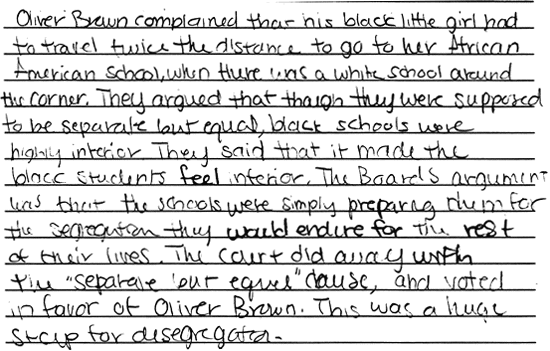 Oliver Brown complained that his black little girl had
to travel twice the distance to go to her African
American school, when there was a white school around
the corner. They argued that though they were supposed
to be separate but equal, black schools were
highly interior. They said that it made the
black students feel interior. The Board's argument
was that the schools were simply preparing them for
the segregation they would endure for the rest
of their lives. The court did away with
the "separate but equal" clause, and voted
in favor of Oliver Brown. This was a huge
step for desegregation.